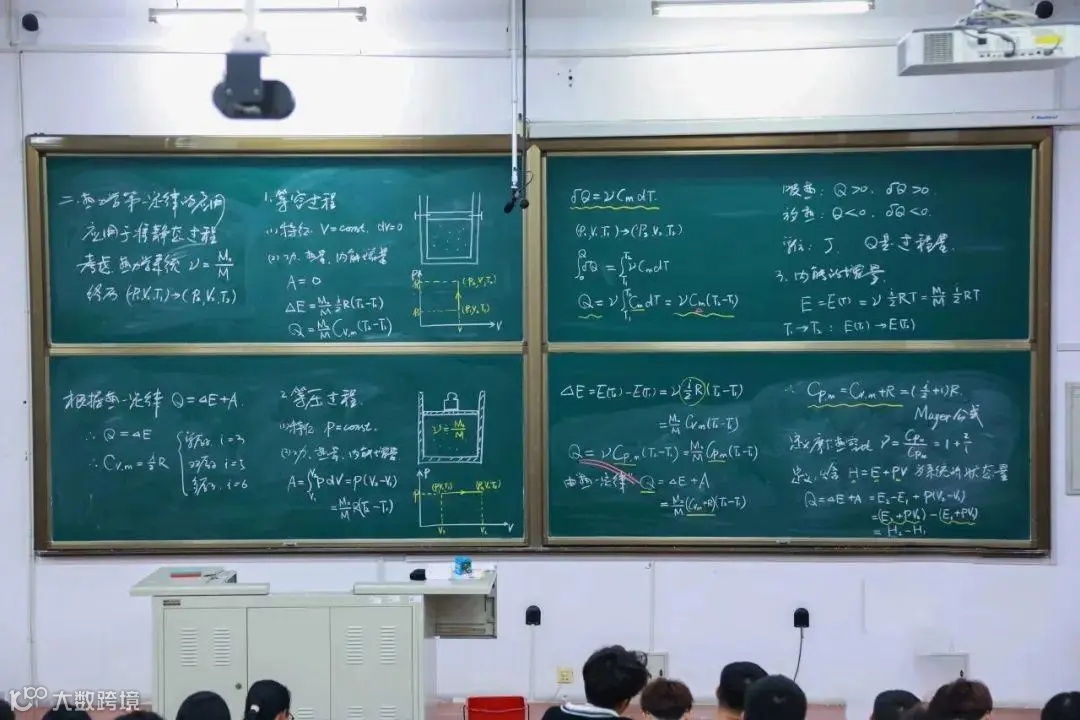 二.热力学第一定律的应用
应用于准静态过程
考虑热力学系统 ν=M₀/M
终态 (P₁V₁T₁)→(P₂V₂T₂)
1.等容过程
(1)特征 V=const. dV=0
(2)功、热量、内能增量
A=0
ΔE=M₀/M i/2 R(T₂-T₁)
Q=M₀/M Cv,m(T₂-T₁)
P
(P₂,V,T₂)
(P₁,V,T₁)
V
V
δQ=νCm dT.
(P₁V₁T₁)→(P₂V₂T₂)
∫₀^Q δQ=∫_T₁^T₂ νCm dT
Q=ν∫_T₁^T₂ Cm dT=νCm(T₂-T₁)
吸热: Q>0. δQ>0.
放热: Q<0. δQ<0.
J Q是过程量.
3.内能的增量
E=E(T)=ν i/2 RT=M₀/M i/2 RT
T₁→T₂: E(T₁)→E(T₂)
根据热一定律 Q=ΔE+A.
∴ Q=ΔE
∴ Cv,m=i/2 R
i=3
i=5
i=6
2.等压过程
(1)特征 P=const.
(2)功、热量、内能增量
A=∫_V₁^V₂ PdV=P(V₂-V₁)
=M₀/M R(T₂-T₁)
ν=M₀/M
P
P
V₁ V₂ V
ΔE=E(T₂)-E(T₁)=ν i/2 R(T₂-T₁)
=M₀/M Cv,m(T₂-T₁)
Q=νCp,m(T₂-T₁)=M₀/M Cp,m(T₂-T₁)
由热一定律 Q=ΔE+A
=M₀/M (Cv,m+R)(T₂-T₁)
∴ Cp,m=Cv,m+R=(i/2+1)R.
Mayer公式
=1+2/i
定义:焓 H=E+PV 为系统的状态量
Q=ΔE+A=E₂-E₁+P(V₂-V₁)
=(E₂+PV₂)-(E₁+PV₁)
=H₂-H₁
大数跨境